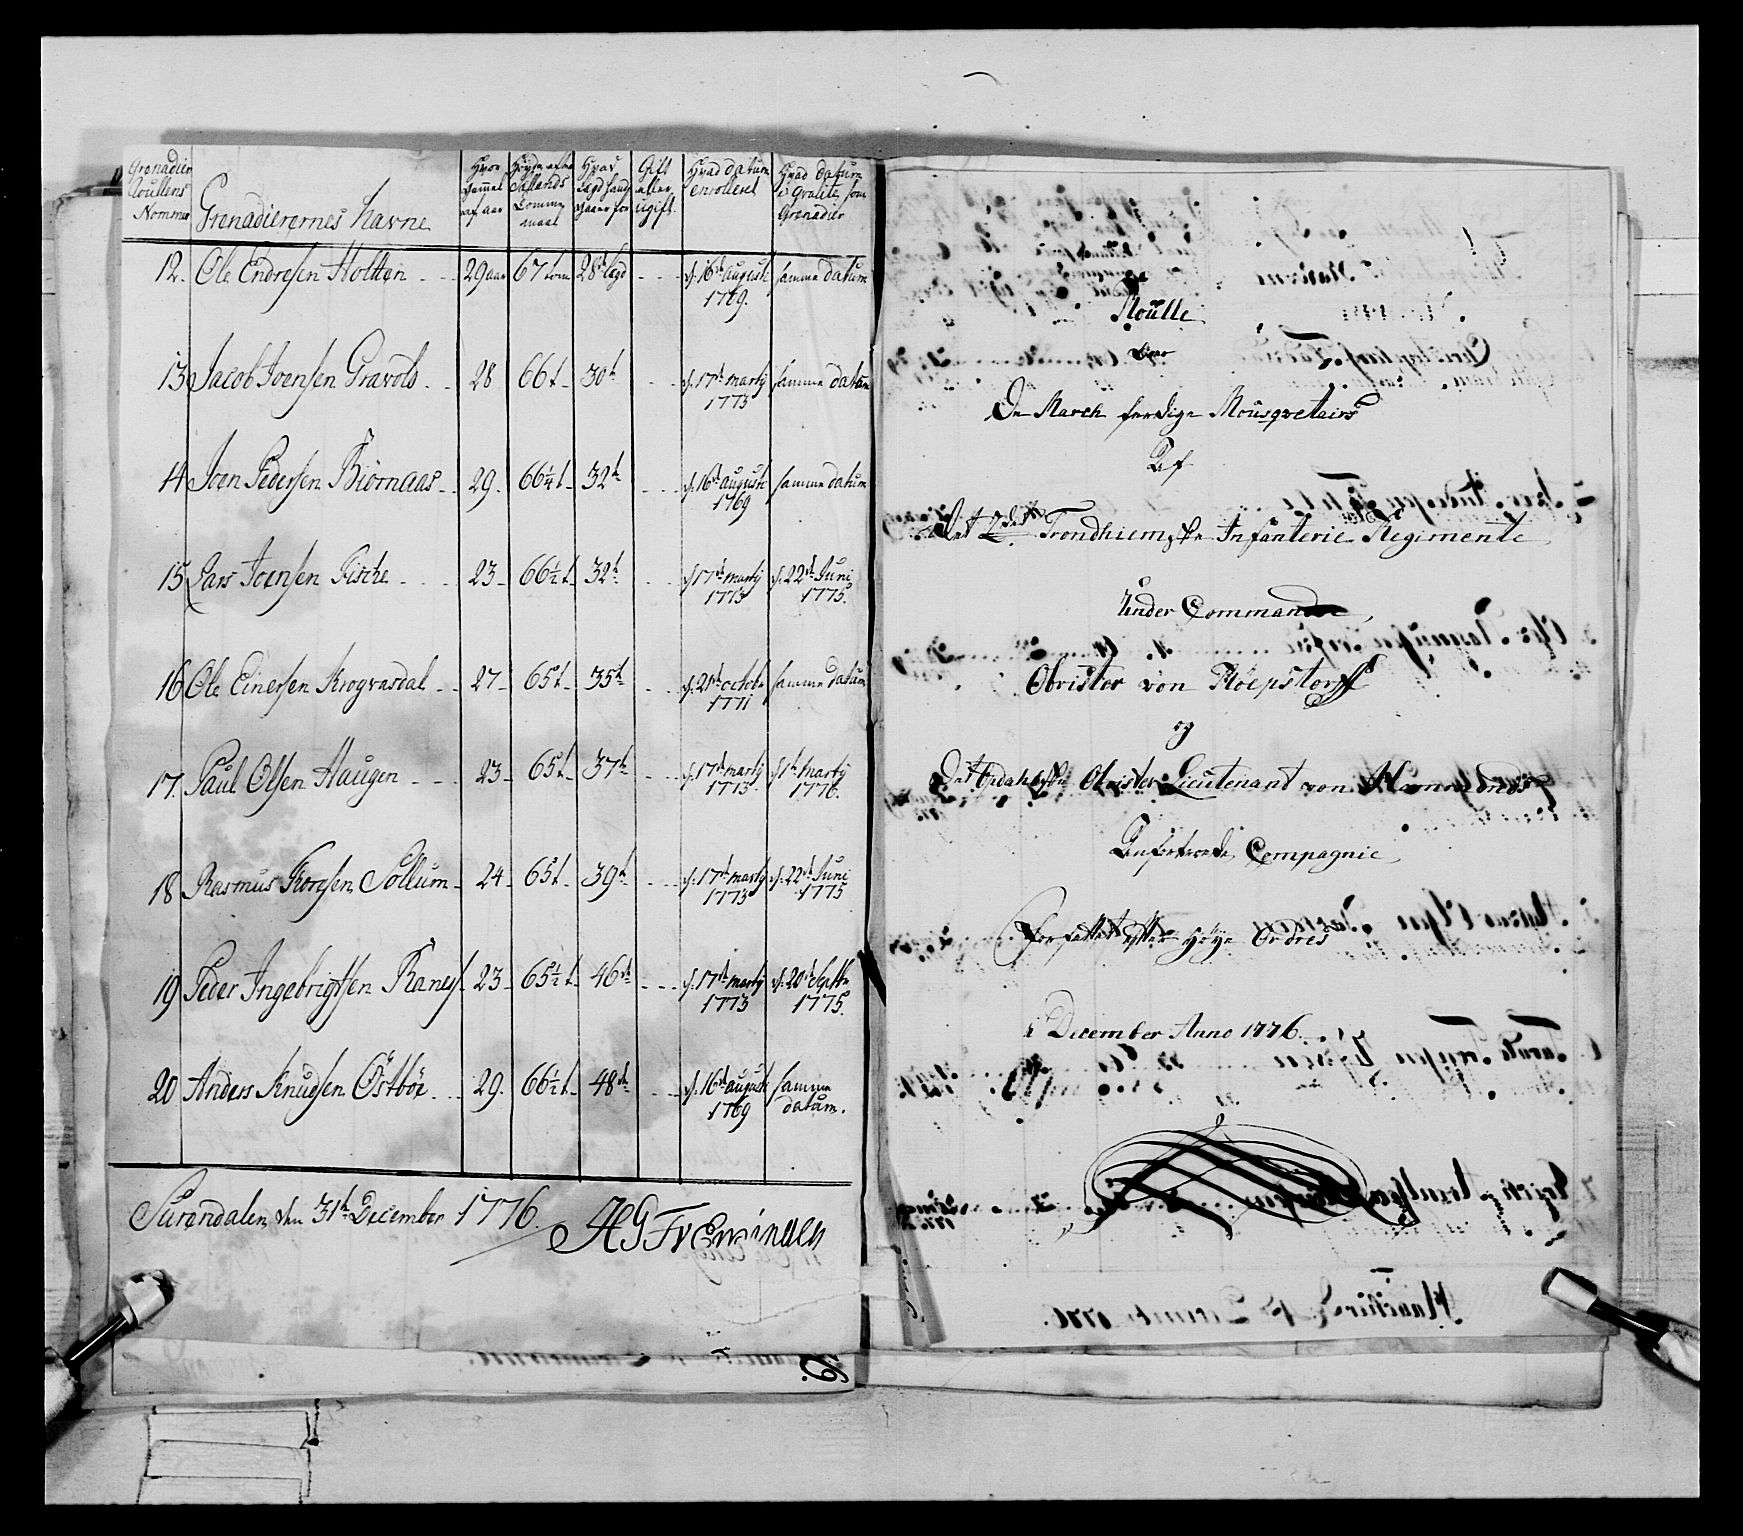 Grenadier Roullens Nommer | Grenadierernes Navne | Hvor gammel af aar | Høyde efter Siellands Tomme maal | Hvad Legd hand staaer for | Gift eller ugift. | Hvad datum enrolleret | Hvad datum i qvalite som Grenadier
12. Ole Endresen Holten 29 aar 67 tom 28de Legd d. 16de august 1769. samme datum
13 Jacob Joensen Gravols 28 66 t 30te d. 17de marty 1773 samme datum
14 Joen Pedersen Biörnaas 29. 66¼ t 32te d. 16de august 1769 samme datum
15 Lars Joensen Fiske 23 66½ t 32te d. 17de marty 1773 d. 22de Juni 1775.
16 Ole Einersen Krogvasdal 27 65 t 35te d. 21de octobr 1771 samme datum
17. Paul Olsen Haugen 23 65 t 37te d. 17de marty 1773. d. 1te marty 1776.
18 Rasmus Toresen Sollum 24 65 t 39te d. 17de marty 1773 d. 22de Juni 1775
19 Peder Ingebrigtsen Ranes 23 65½ t 46de d. 17de marty 1773 d. 20de Septbr 1775.
20 Anders Knudsen Östböe 29. 66½ t 48de d. 16de august 1769 samme datum.
Surendalen den 31te December 1776.
6.
Roulle
over
De March ferdige Mousqvetairs
Af
Det 2det Trondhiemske Infanterie Regimente
Under Commando
Obrister von
og
Det Opdahlske Obrister Lieutenant von
Anförtroede Compagnie
Forfattet efter Höye Ordres
i December Anno 1776.